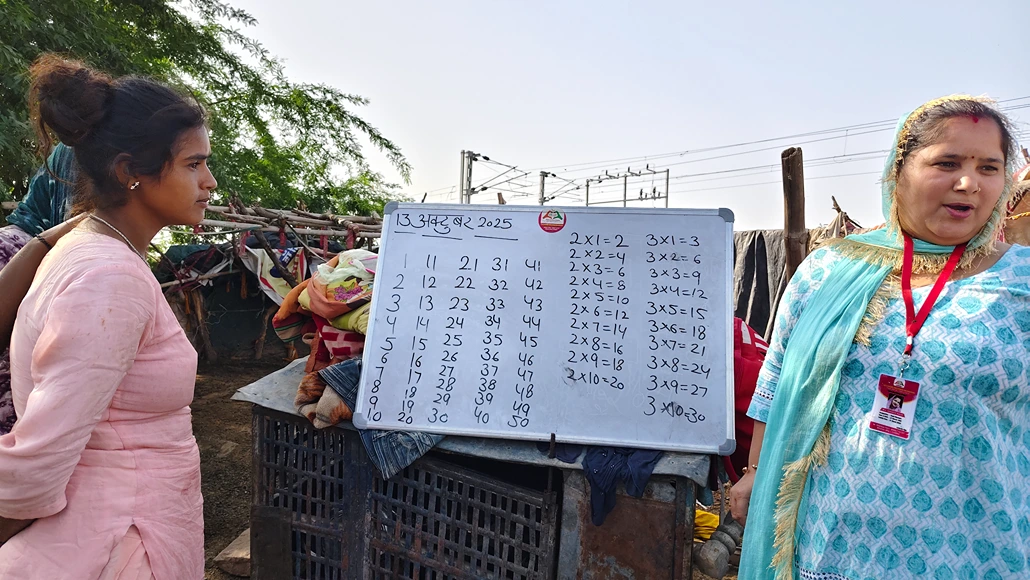 13 अक्टुबर 2025
1 11 21 31 41
2 12 22 32 42
3 13 23 33 43
4 14 24 34 44
5 15 25 35 45
6 16 26 36 46
7 17 27 37 47
8 18 28 38 48
9 19 29 39 49
10 20 30 40 50
2×1=2
2×2=4
2×3=6
2×4=8
2×5=10
2×6=12
2×7=14
2×8=16
2×9=18
2×10=20
3×1=3
3×2=6
3×3=9
3×4=12
3×5=15
3×6=18
3×7=21
3×8=24
3×9=27
3×10=30